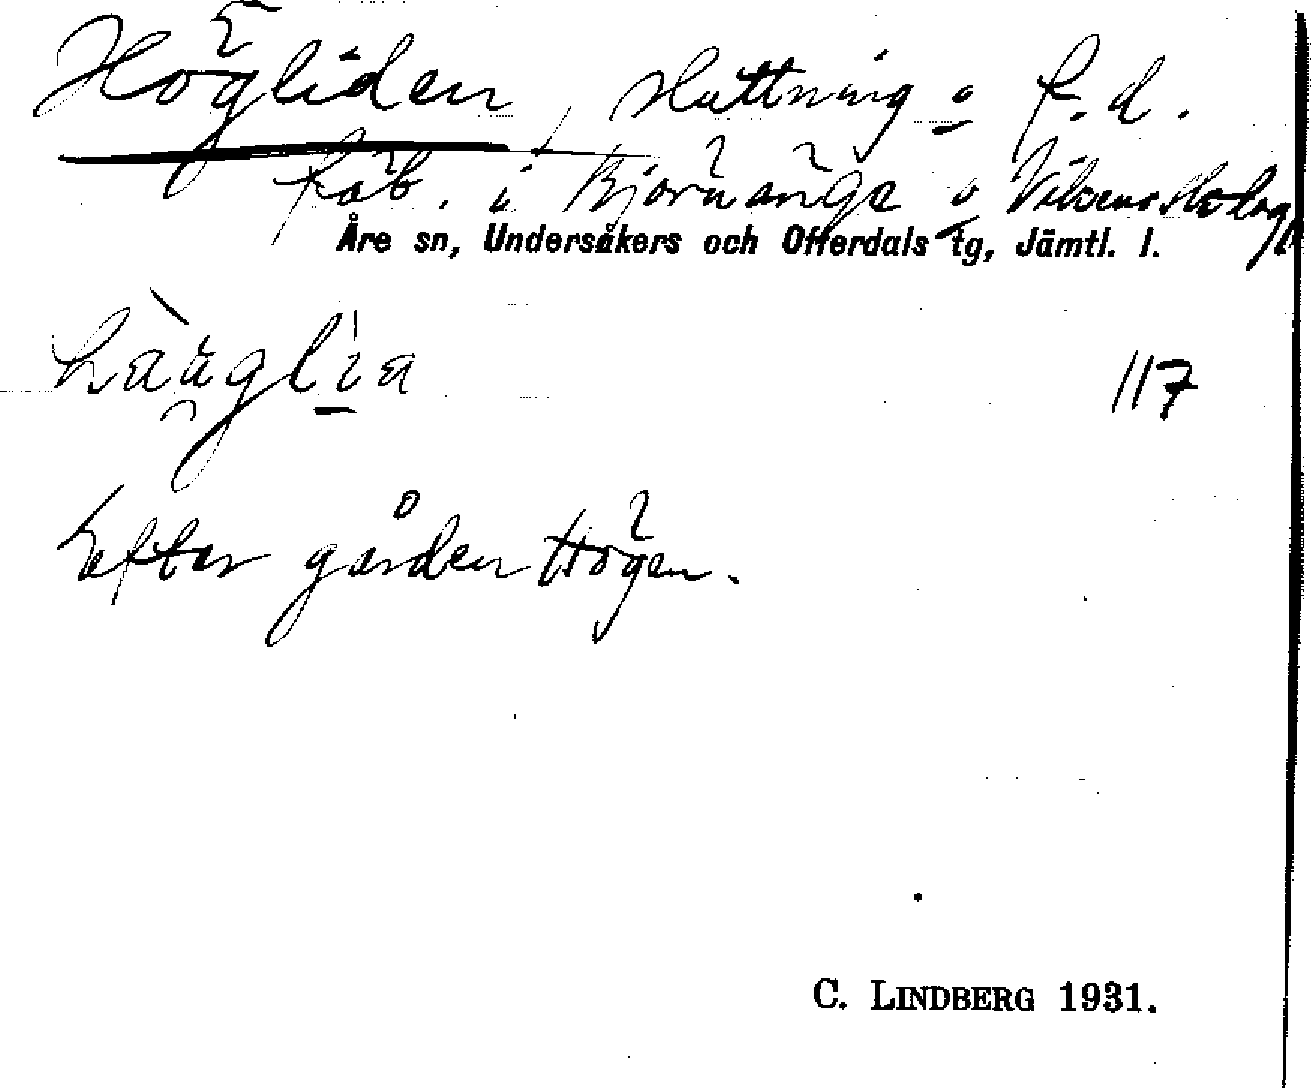 Högliden, sluttning o f.d.
fäb. i Björnänge o Vikens skolag
Åre sn, Undersåkers och Offerdals tg, Jämtl. l.
hàuglìa 117
Efter gården Högen.
C. LINDBERG 1931.